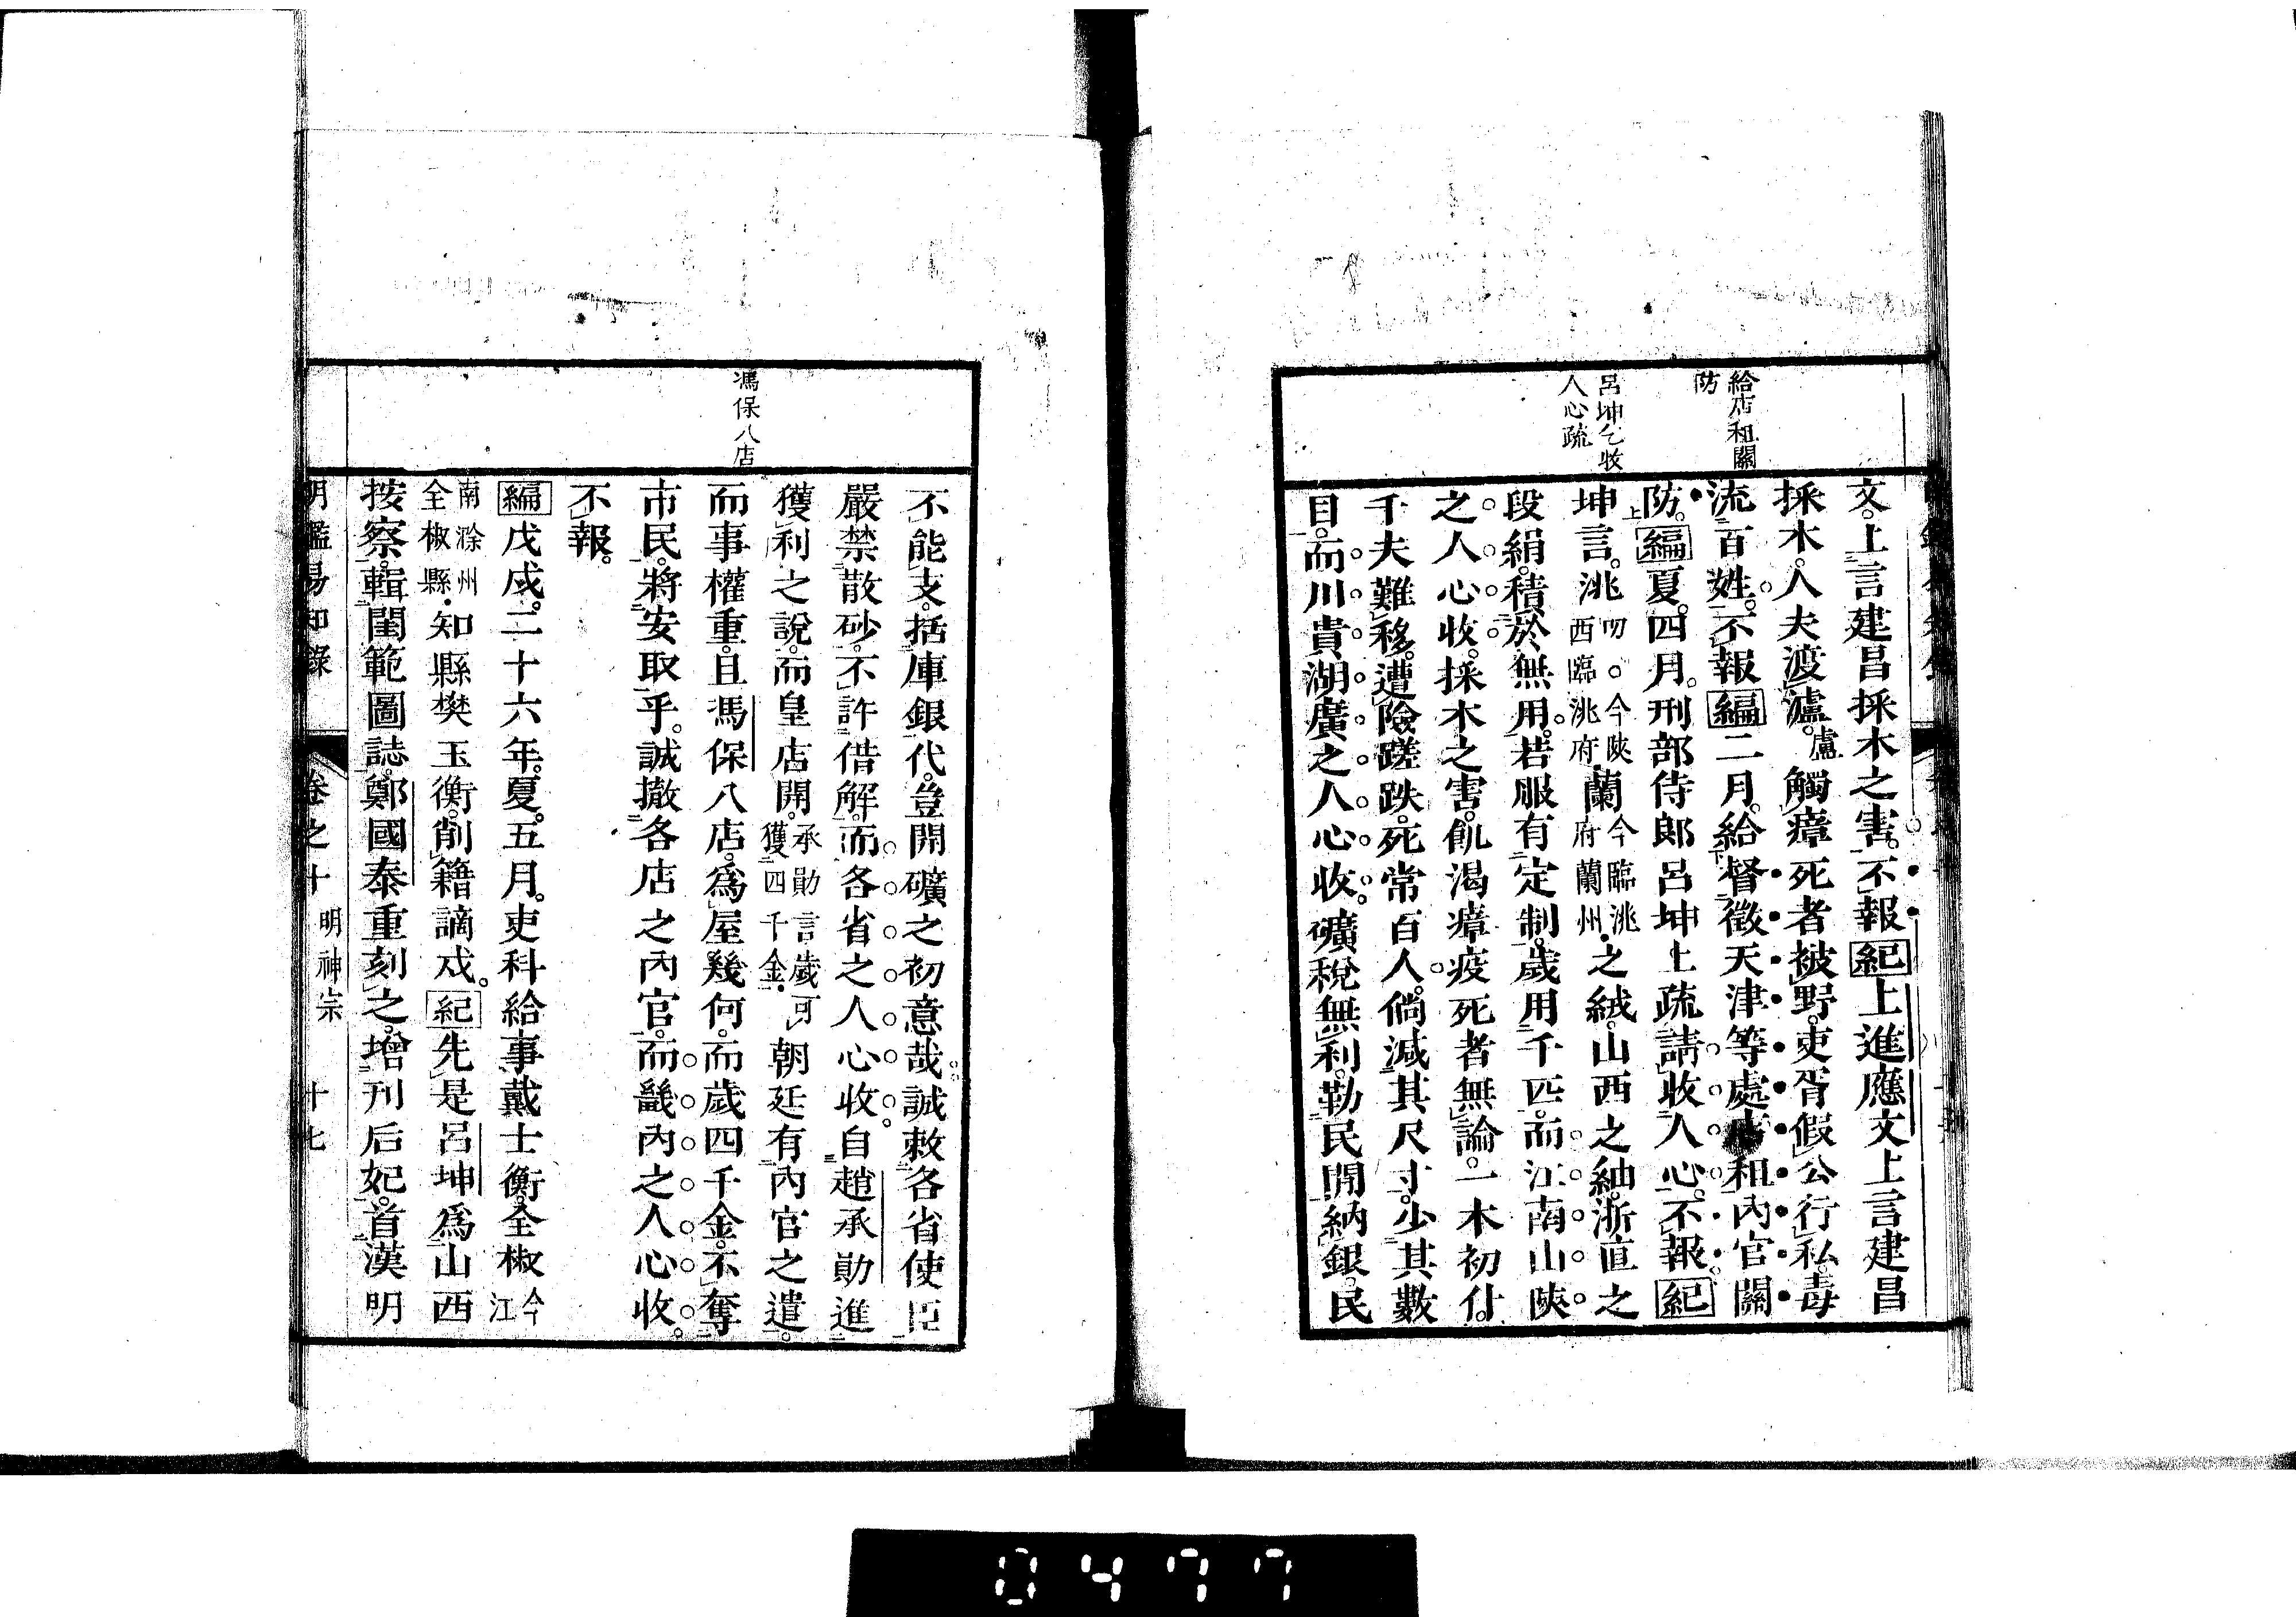 給店租關
防
呂坤乞收
人心疏
文。上言建昌採木之害。不報紀上進應文上言建昌
採木。人夫渡瀘。盧觸瘴死者被野。吏胥假公行私。毒
流百姓。不報編二月。給督徵天津等處店租內官關
防。編夏。四月。刑部侍郎呂坤上疏請收人心。不報紀
坤言。洮叨。今陝西臨洮府蘭今臨洮府蘭州之絨。山西之紬。浙直之
段絹。積於無用。若服有定制。歲用千匹。而江南山陝
之人心收。採木之害。飢渴瘴疫死者無論。一木初仆。
千夫難移。遭險蹉跌。死常百人。倘減其尺寸。少其數
目。而川貴湖廣之人心收。礦稅無利。勒民開納銀。民
馮保八店
不能支。括庫銀代。豈開礦之初意哉。誠敕各省使臣
嚴禁散砂。不許借解。而各省之人心收。自趙承勛進
獲利之說。而皇店開。承勛言歲可獲四千金。朝廷有內官之遣。
而事權重。且馮保八店。爲屋幾何。而歲四千金。不奪
市民。將安取乎。誠撤各店之內官。而畿內之人心收。
不報。
編戊戌。二十六年。夏。五月。吏科給事戴士衡。全椒今江
南滁州全椒縣知縣樊玉衡。削籍謫戍。紀先是呂坤爲山西
按察。輯閨範圖誌。鄭國泰重刻之。增刊后妃。首漢明
明鑑易知錄 卷之十 明神宗 十七
0477